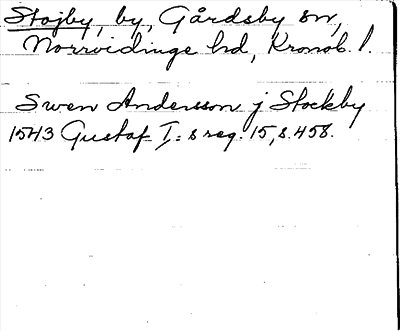 Stojby, by, Gårdsby sn,
Norrvidinge hd, Kronob. l.
Swen Andersson j Stockby
1543 Gustaf I:s reg. 15, s. 458.